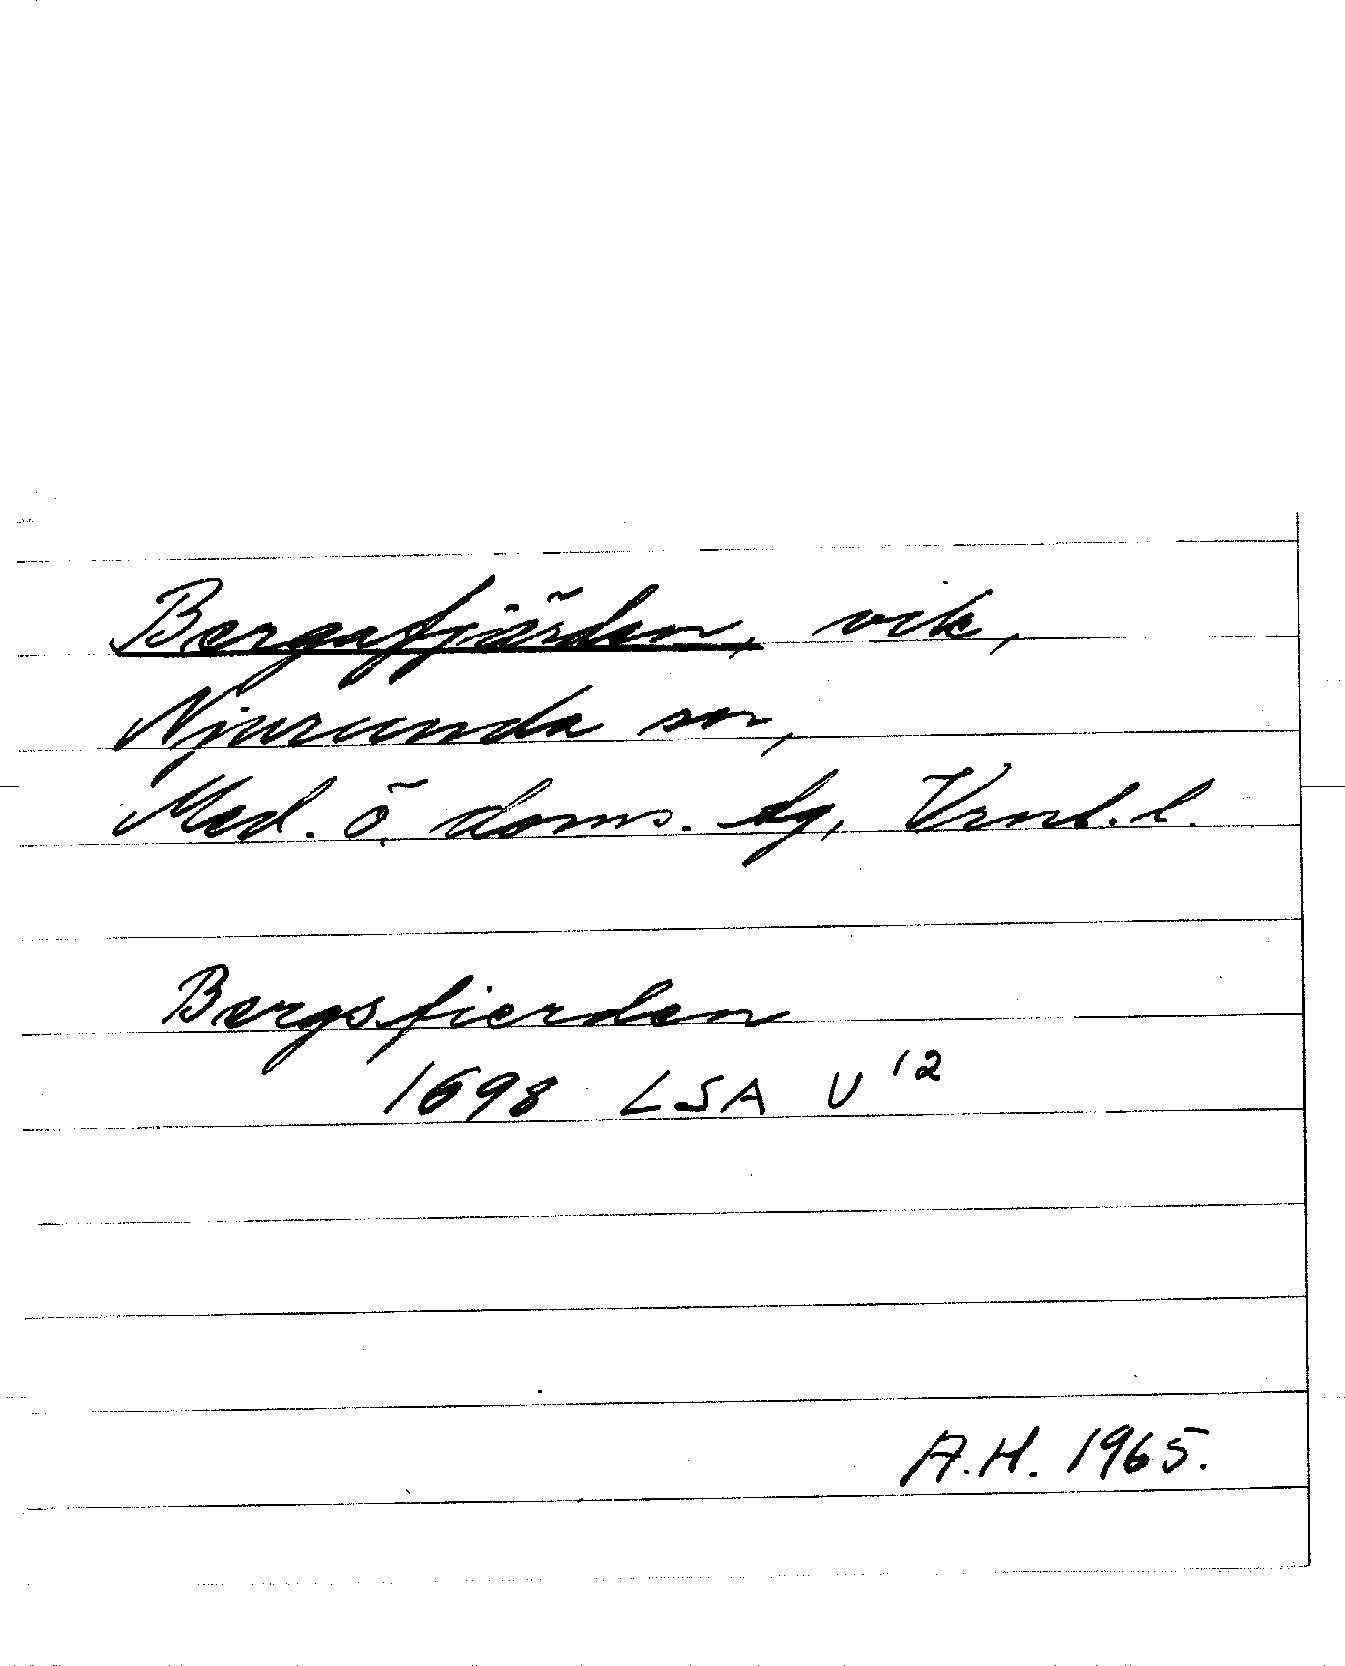 Bergafjärden, vik,
Njurunda sn,
Med. ö. doms. tg, Vrnl. l.
Bergsfierden
1698 LSA U 12
A.H. 1965.